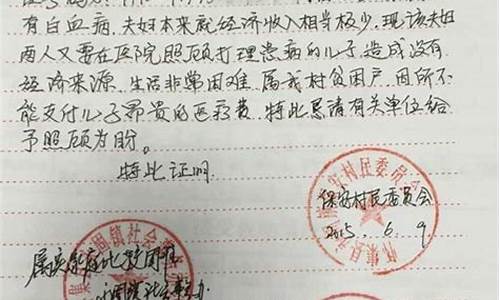 有白血病,夫妇本来就经济收入相当极少,现该夫妇
两人又要在医院照顾打理患病的儿子,造成没有
经济来源,生活非常困难,属我村贫困户,因所不
能支付儿子昂贵的医疗费,特此恳请有关单位给
予照顾为盼。
特此证明
村民委员会
保安村民委员会
2015.6.9
怀集县
镇社会
属实,家庭比较困难